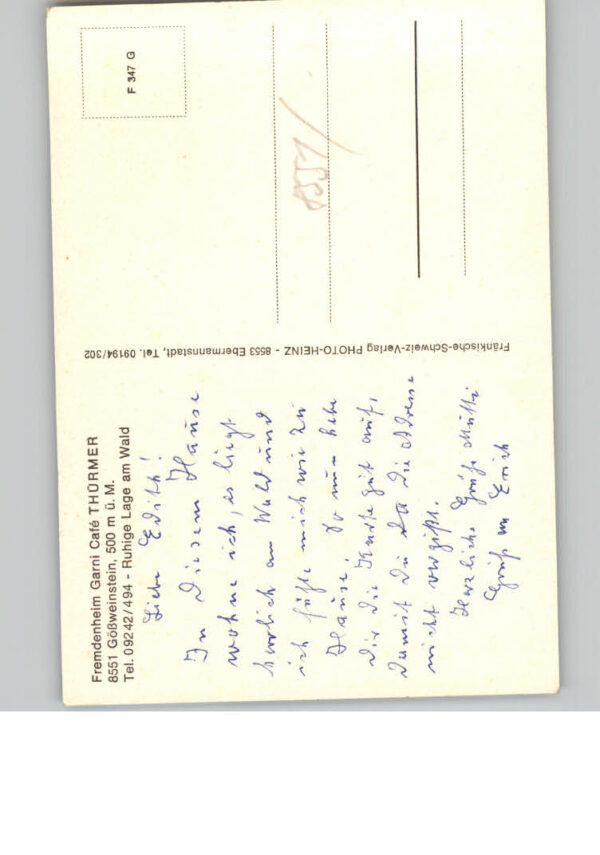 Fremdenheim Garni Café THÜRMER
8551 Gößweinstein, 500 m ü. M.
Tel. 09242/494 - Ruhige Lage am Wald
Liebe Edith!
In diesem Hause
wohne ich, es liegt
herrlich am Wald und
ich fühle mich wie zu
Hause. So nun hebe
dir die Karte gut auf,
damit Du die Adresse
nicht vergißt.
Herzliche Grüße Mutti
Gruß an Erich
Fränkische-Schweiz-Verlag PHOTO-HEINZ - 8553 Ebermannstadt, Tel. 09194/302
F 347 G